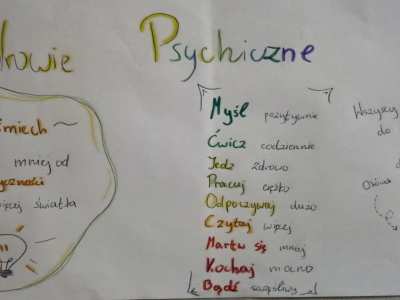 Psychiczne
Myśl pozytywnie
Ćwicz codziennie
Jedz zdrowo
Pracuj ciężko
Odpoczywaj dużo
Czytaj więcej
Martw się mniej
Kochaj mocno
Bądź szczęśliwy
mniej od
światła
Wszyscy
do